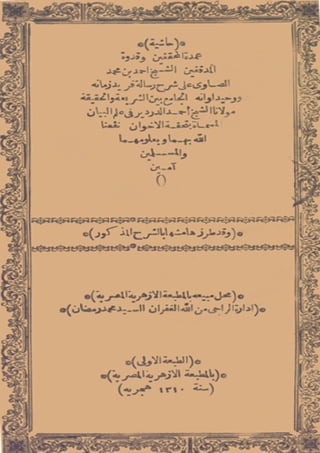 *(حاشية)*
عمدة المحققين وقدوة
المدققين الشيخ احمد بن محمد
الصاوى على شرح رسالة فريد زمانه
ووحيد اوانه الجامع بين الشريعة والحقيقة
مولانا الشيخ أحمد الدردير فى علم البيان
المسماة بتحفة الاخوان نفعنا
الله بهما وبعلومهما
والمسلمين
آمين
()
*(وقد طرز هامشها بالشرح المذكور)*
*(محل مبيعه بالمطبعة الازهرية المصرية)*
*(ادارة الراجى من الله الغفران السيد محمد رمضان)*
*(الطبعة الاولى)*
*(بالمطبعة الازهرية المصرية)*
(سنة ١٣١٠ هجريه)